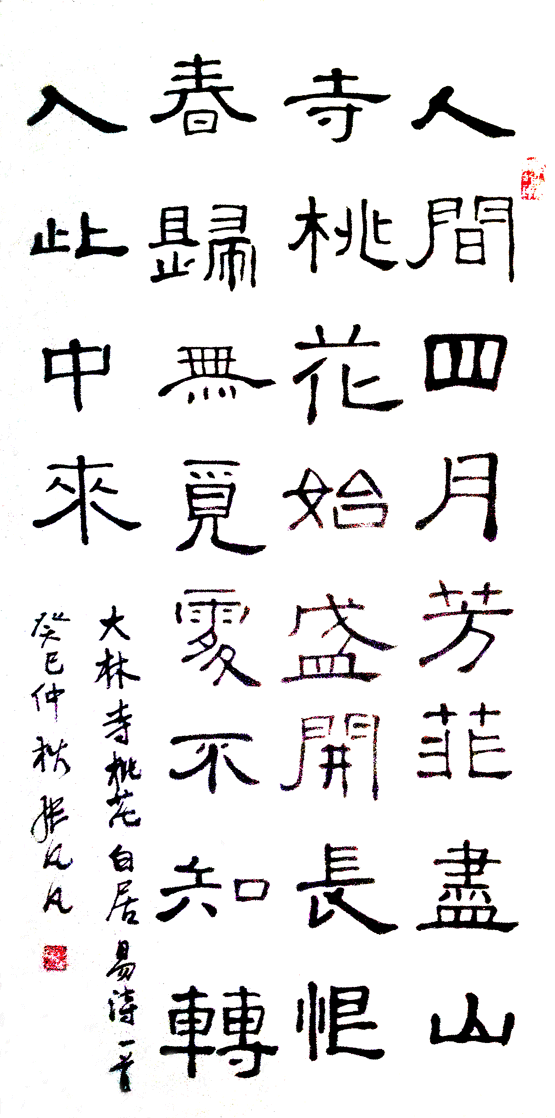 人間四月芳菲盡山
寺桃花始盛開長恨
春歸無覓處不知轉
入此中來
大林寺桃花白居易詩一首
癸巳仲秋